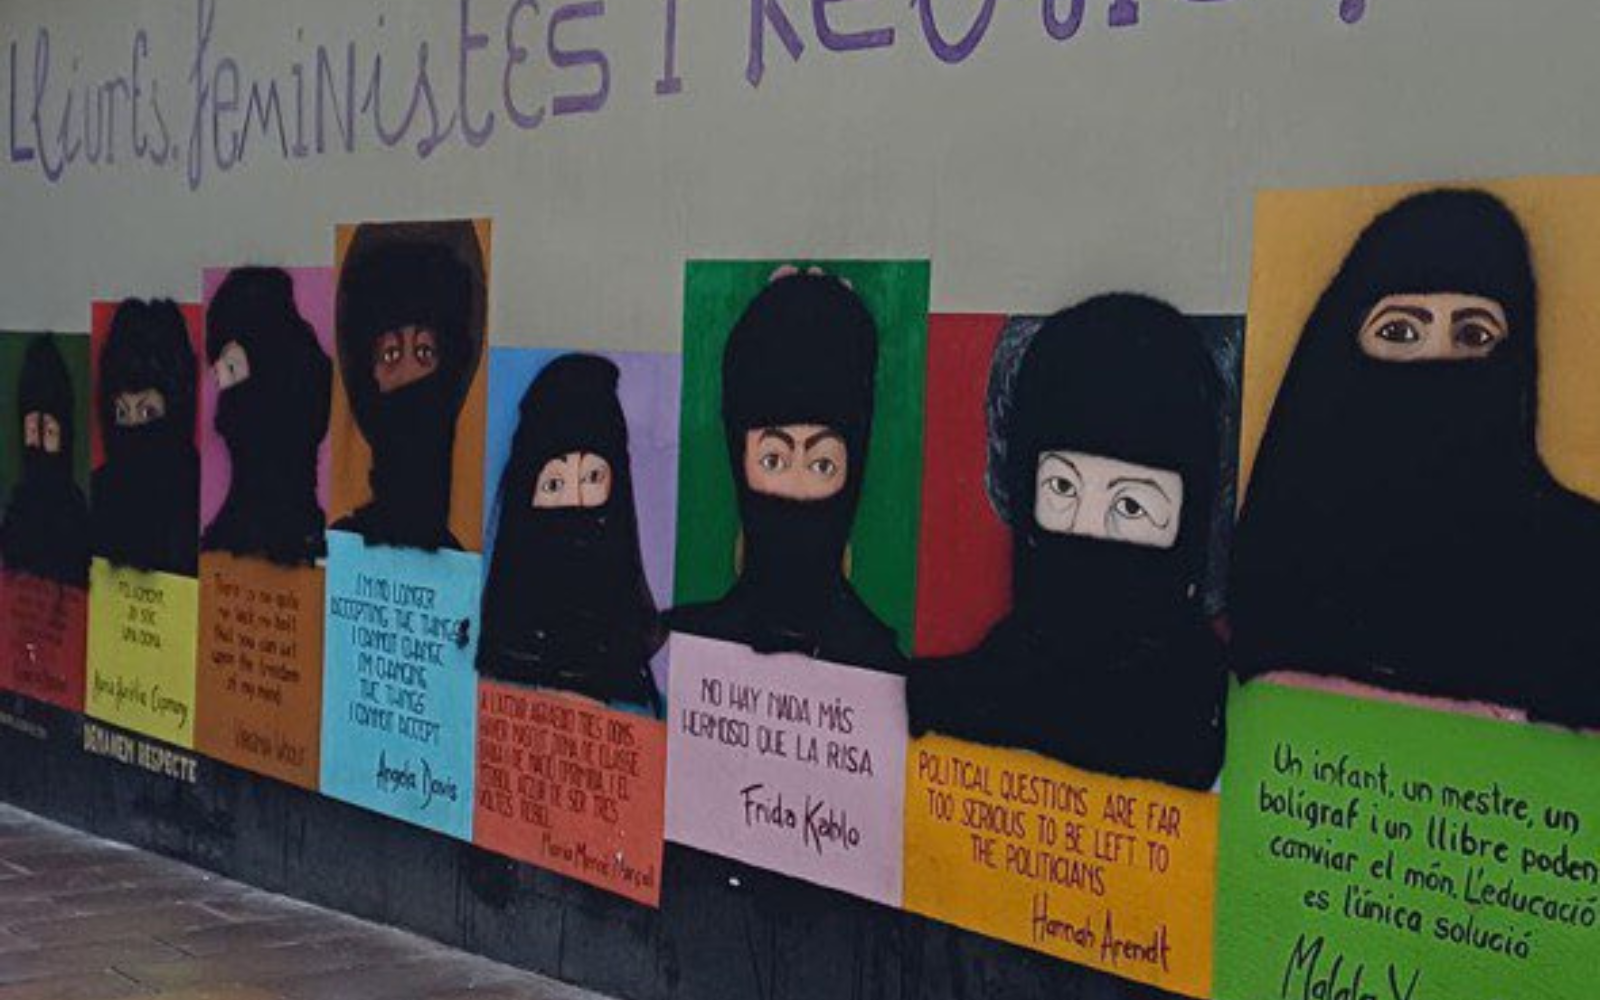 Lliures, feministes i
NO HAY NADA MÁS
HERMOSO QUE LA RISA
Frida Kahlo
POLITICAL QUESTIONS ARE FAR
TOO SERIOUS TO BE LEFT TO
THE POLITICIANS
Hannah Arendt
Un infant, un mestre, un
bolígraf i un llibre poden
canviar el món. L'educació
es l'única solució
Malala Y
I'M NO LONGER
ACCEPTING THE THINGS
I CANNOT CHANGE
I'M CHANGING
THE THINGS
I CANNOT ACCEPT
Angela Davis
A L'ATZAR AGRAEIXO TRES DONS:
HAVER NASCUT DONA, DE CLASSE
BAIXA I DE NACIÓ OPRIMIDA. I EL
TÈRBOL ATZUR DE SER TRES
VOLTES REBEL
Maria Mercè Marçal
There is no gate,
no lock, no bolt
that you can set
upon the freedom
of my mind
Virginia Woolf
JO SÓC
UNA DONA
Maria Aurèlia Capmany
DEMANEM RESPECTE